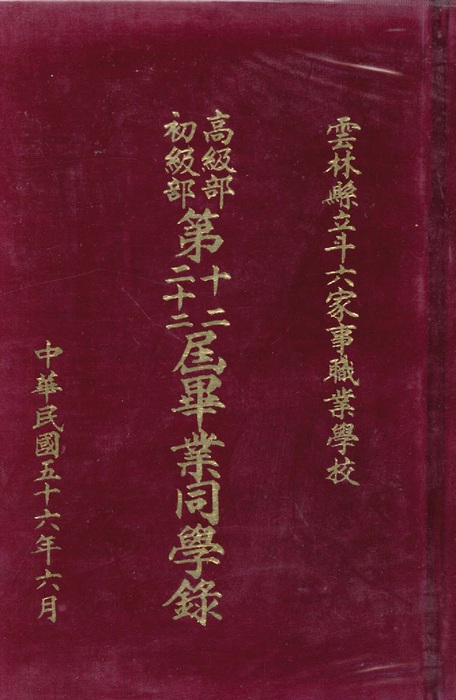 雲林縣立斗六家事職業學校
高級部
初級部
第
十二
二十二
屆畢業同學錄
中華民國五十六年六月